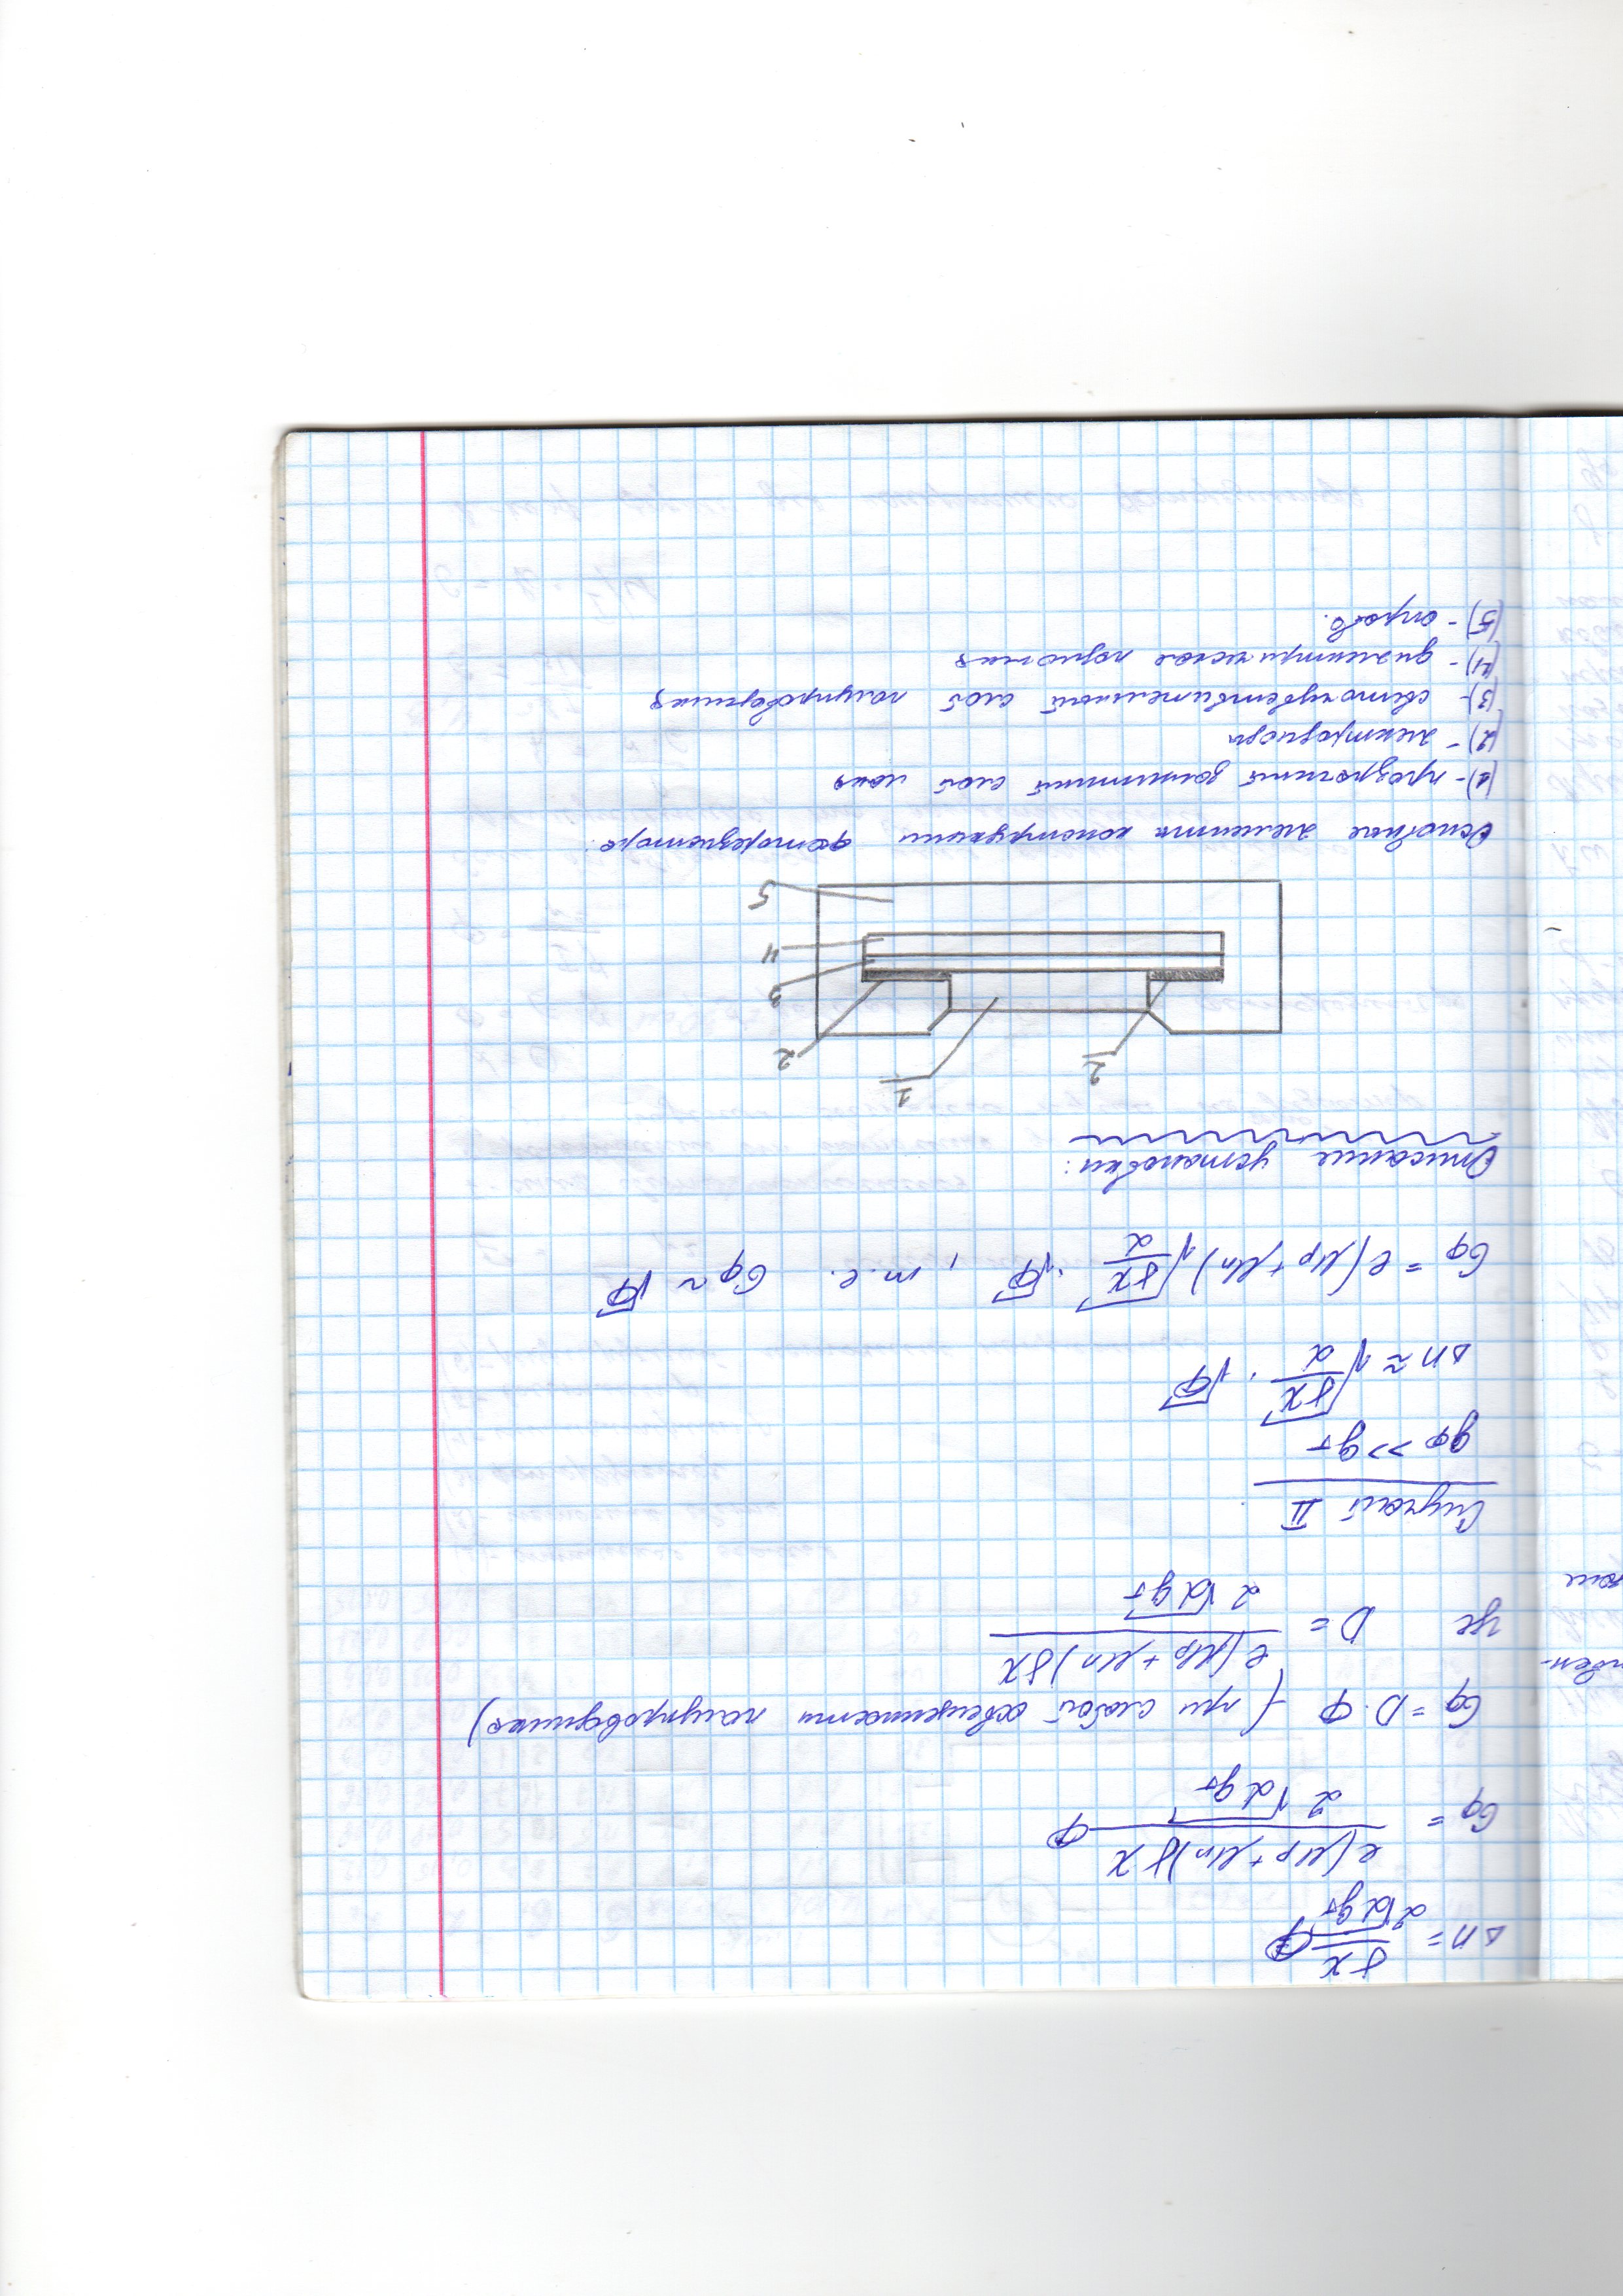 Δn = γχ / 2√(αg_т) Ф
σ_ф = e(μ_p + μ_n)γχ / 2√(αg_т) Ф
σ_ф = D·Ф – (при слабой освещенности полупроводника)
где D = e(μ_p + μ_n)γχ / 2√(αg_т)
Случай II
g_ф >> g_т
Δn ≈ √(γχ/α) · √Ф
σ_ф = e(μ_p + μ_n)√(γχ/α) · √Ф , т.е. σ_ф ~ √Ф
Описание установки:
1
2
2
3
4
5
Основные элементы конструкции фоторезистора:
(1) – прозрачный защитный слой лака
(2) –
(3) – светочувствительный слой полупроводника
(4) – диэлектрическая подложка
(5) – оправа.